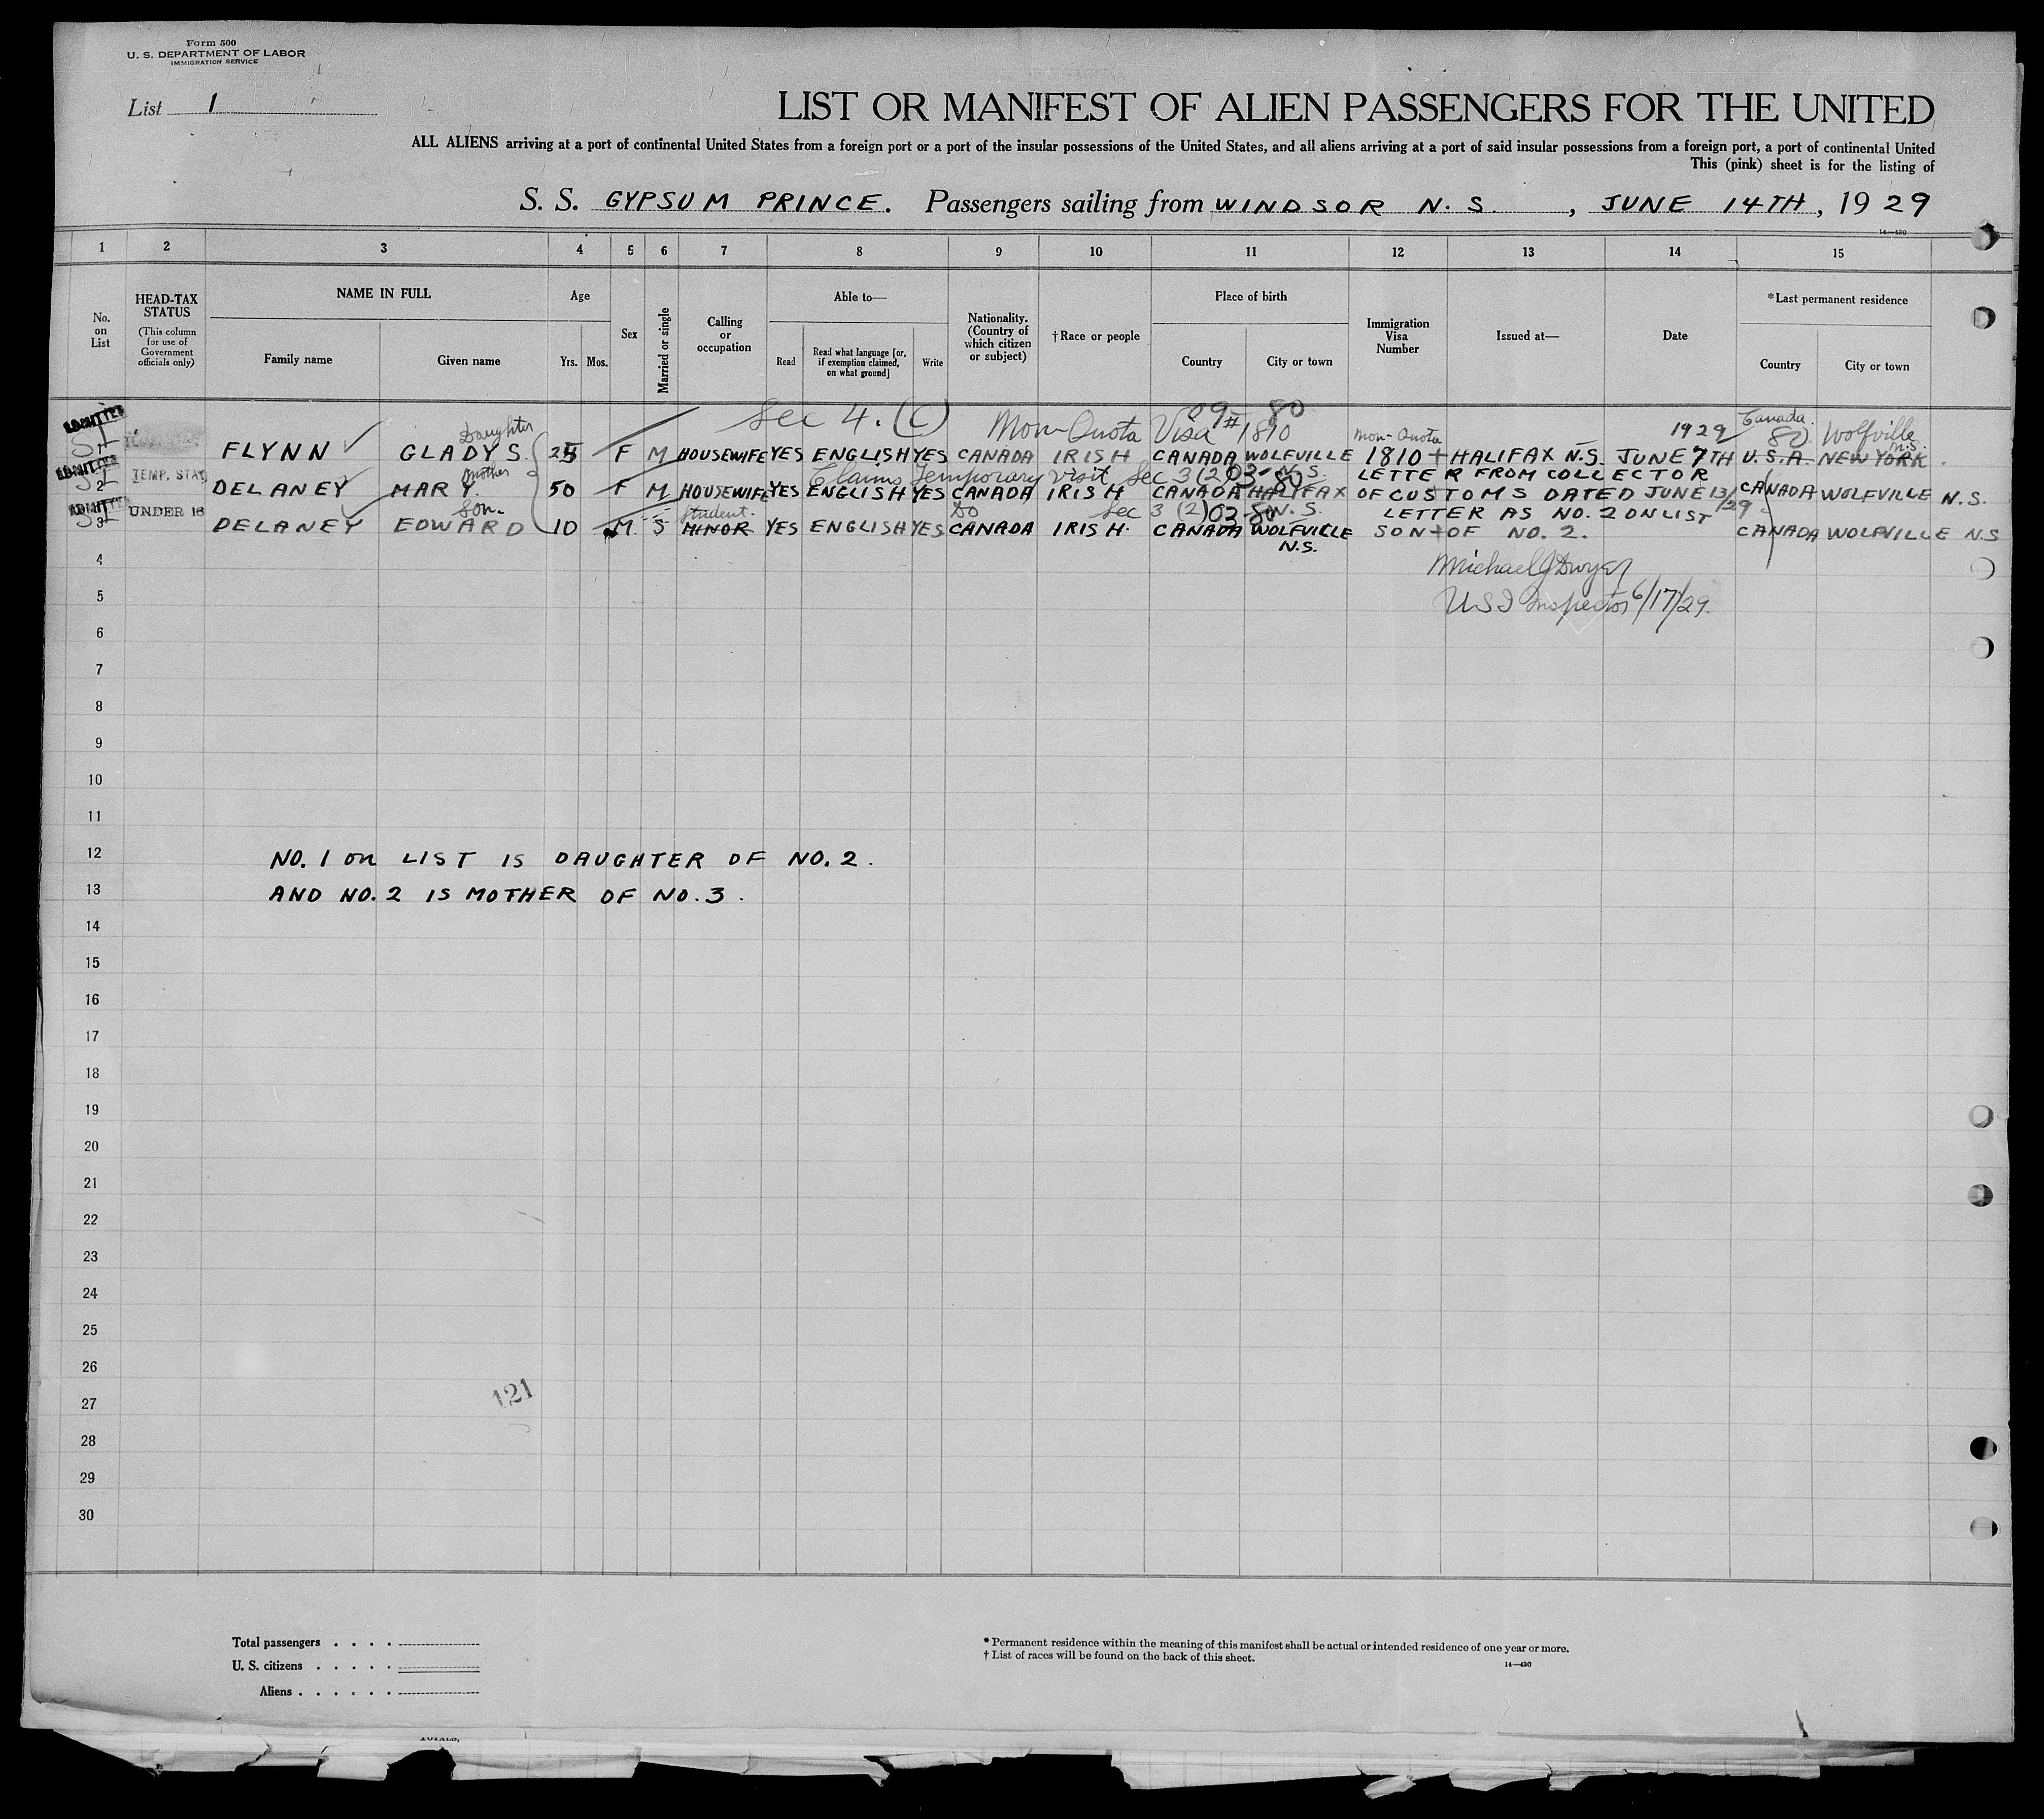 Form 500
U. S. DEPARTMENT OF LABOR
IMMIGRATION SERVICE
List 1
LIST OR MANIFEST OF ALIEN PASSENGERS FOR THE UNITED
ALL ALIENS arriving at a port of continental United States from a foreign port or a port of the insular possessions of the United States, and all aliens arriving at a port of said insular possessions from a foreign port, a port of continental United
This (pink) sheet is for the listing of
S. S. GYPSUM PRINCE. Passengers sailing from WINDSOR N. S., JUNE 14TH, 1929
14—430
1 2 3 4 5 6 7 8 9 10 11 12 13 14 15
No. on List
HEAD-TAX STATUS
(This column for use of Government officials only)
NAME IN FULL
Family name Given name
Age
Yrs. Mos.
Sex
Married or single
Calling or occupation
Able to—
Read Read what language [or, if exemption claimed, on what ground] Write
Nationality. (Country of which citizen or subject)
†Race or people
Place of birth
Country City or town
Immigration Visa Number
Issued at—
Date
*Last permanent residence
Country City or town
Sec 4. (c) 09 80
Daughter Non-Quota Visa #1810 Non-Quota 1929 Canada 80 Wolfville N.S.
ADMITTED 1 FLYNN GLADYS. 25 F M HOUSEWIFE YES ENGLISH YES CANADA IRISH CANADA WOLFVILLE 1810 HALIFAX N.S. JUNE 7TH U.S.A. NEW YORK.
mother Claims Temporary visit Sec 3 (2) 03-80 N.S. LETTER FROM COLLECTOR
ADMITTED 2 TEMP. STAY DELANEY MARY. 50 F M HOUSEWIFE YES ENGLISH YES CANADA IRISH CANADA HALIFAX OF CUSTOMS DATED JUNE 13/29 CANADA WOLFVILLE N.S.
Son. Student. Do Sec 3 (2) 03-80 N.S. LETTER AS NO. 2 ON LIST
ADMITTED 3 UNDER 16 DELANEY EDWARD 10 M. S MINOR YES ENGLISH YES CANADA IRISH. CANADA WOLFVILLE N.S. SON OF NO. 2. CANADA WOLFVILLE N.S
4
Michael J Dwyer
5
USI Inspector 6/17/29.
6
7
8
9
10
11
12 NO. 1 on LIST IS DAUGHTER OF NO. 2.
13 AND NO. 2 IS MOTHER OF NO. 3.
14
15
16
17
18
19
20
21
22
23
24
25
26
27
121
28
29
30
Total passengers
U. S. citizens
Aliens
* Permanent residence within the meaning of this manifest shall be actual or intended residence of one year or more.
† List of races will be found on the back of this sheet.
14—430
TOTALS,